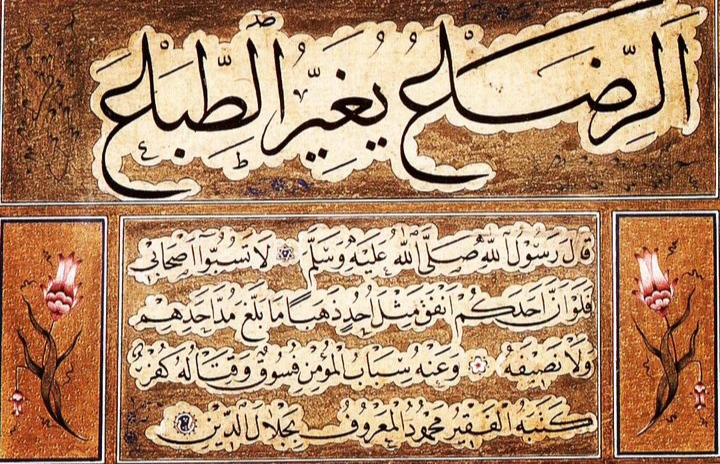 اَلرِّضَاعُ يُغَيِّرُ الطِّبَاعَ
قَالَ رَسُولُ اللهِ صَلَّى اللهُ عَلَيْهِ وَسَلَّمَ لَا تَسُبُّوا اَصْحَابِى
فَلَوْ اَنَّ اَحَدَكُمْ اَنْفَقَ مِثْلَ اُحُدٍ ذَهَبًا مَا بَلَغَ مُدَّ اَحَدِهِمْ
وَلَا نَصِيفَهُ وَعَنْهُ سِبَابُ الْمُؤْمِنِ فُسُوقٌ وَقِتَالُهُ كُفْرٌ
كَتَبَهُ الْفَقِيرُ مَحْمُودُ الْمَعْرُوفُ بِجَلَالِ الدِّينِ